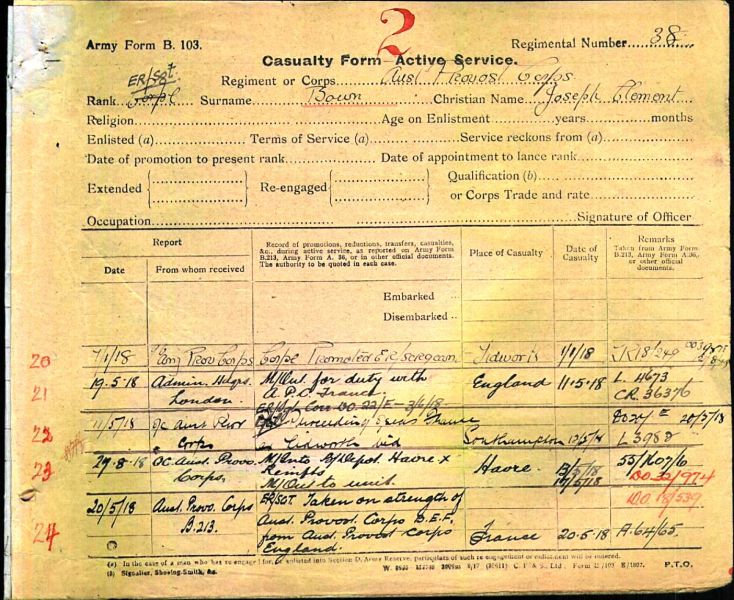 2
Army Form B. 103.
Regimental Number 38
Casualty Form—Active Service.
Regiment or Corps Aust Provost Corps
ER/Sgt
Rank Corpl Surname Bown Christian Name Joseph Clement
Religion Age on Enlistment years months
Enlisted (a) Terms of Service (a) Service reckons from (a)
Date of promotion to present rank Date of appointment to lance rank
Extended Re-engaged Qualification (b)
or Corps Trade and rate
Occupation Signature of Officer
Report
Date From whom received
Record of promotions, reductions, transfers, casualties, &c., during active service, as reported on Army Form B.213, Army Form A. 36, or in other official documents. The authority to be quoted in each case.
Place of Casualty
Date of Casualty
Remarks
Taken from Army Form B.213, Army Form A.36, or other official documents.
Embarked
Disembarked
20 7/1/18 Prov Corps Corpl Promoted E.R/Sergean Tidworth 1/1/18 JR18/249
21 19.5.18 Admin. Hdqrs. London. M/Out. for duty with A.P.C. France England 11.5.18 L. 4673 CR. 36376
ER/Sgt Corr DO.22/E
22 11/5/18 o/c Aust Prov Corps Proceeding Overseas France ex Tidworth via Southampton 20/5/18 L3988
23 29.8.18 OC. Aust. Provo. Corps. M/Into B/Depot. Havre Reinfts M/Out to unit. Havre 53/1607/6
DO.32/974
DO.18/539
24 20/5/18 Aust. Provo. Corps B.213. ER/SGT. Taken on strength of Aust. Provost Corps B.E.F. from Aust. Provost Corps England. France 20.5.18 A.64/65.
(a) In the case of a man who has re-engaged for, or enlisted into Section D, Army Reserve, particulars of such re-engagement or enlistment will be entered.
(b) Signaller, Shoeing-Smith, &c.
P.T.O.